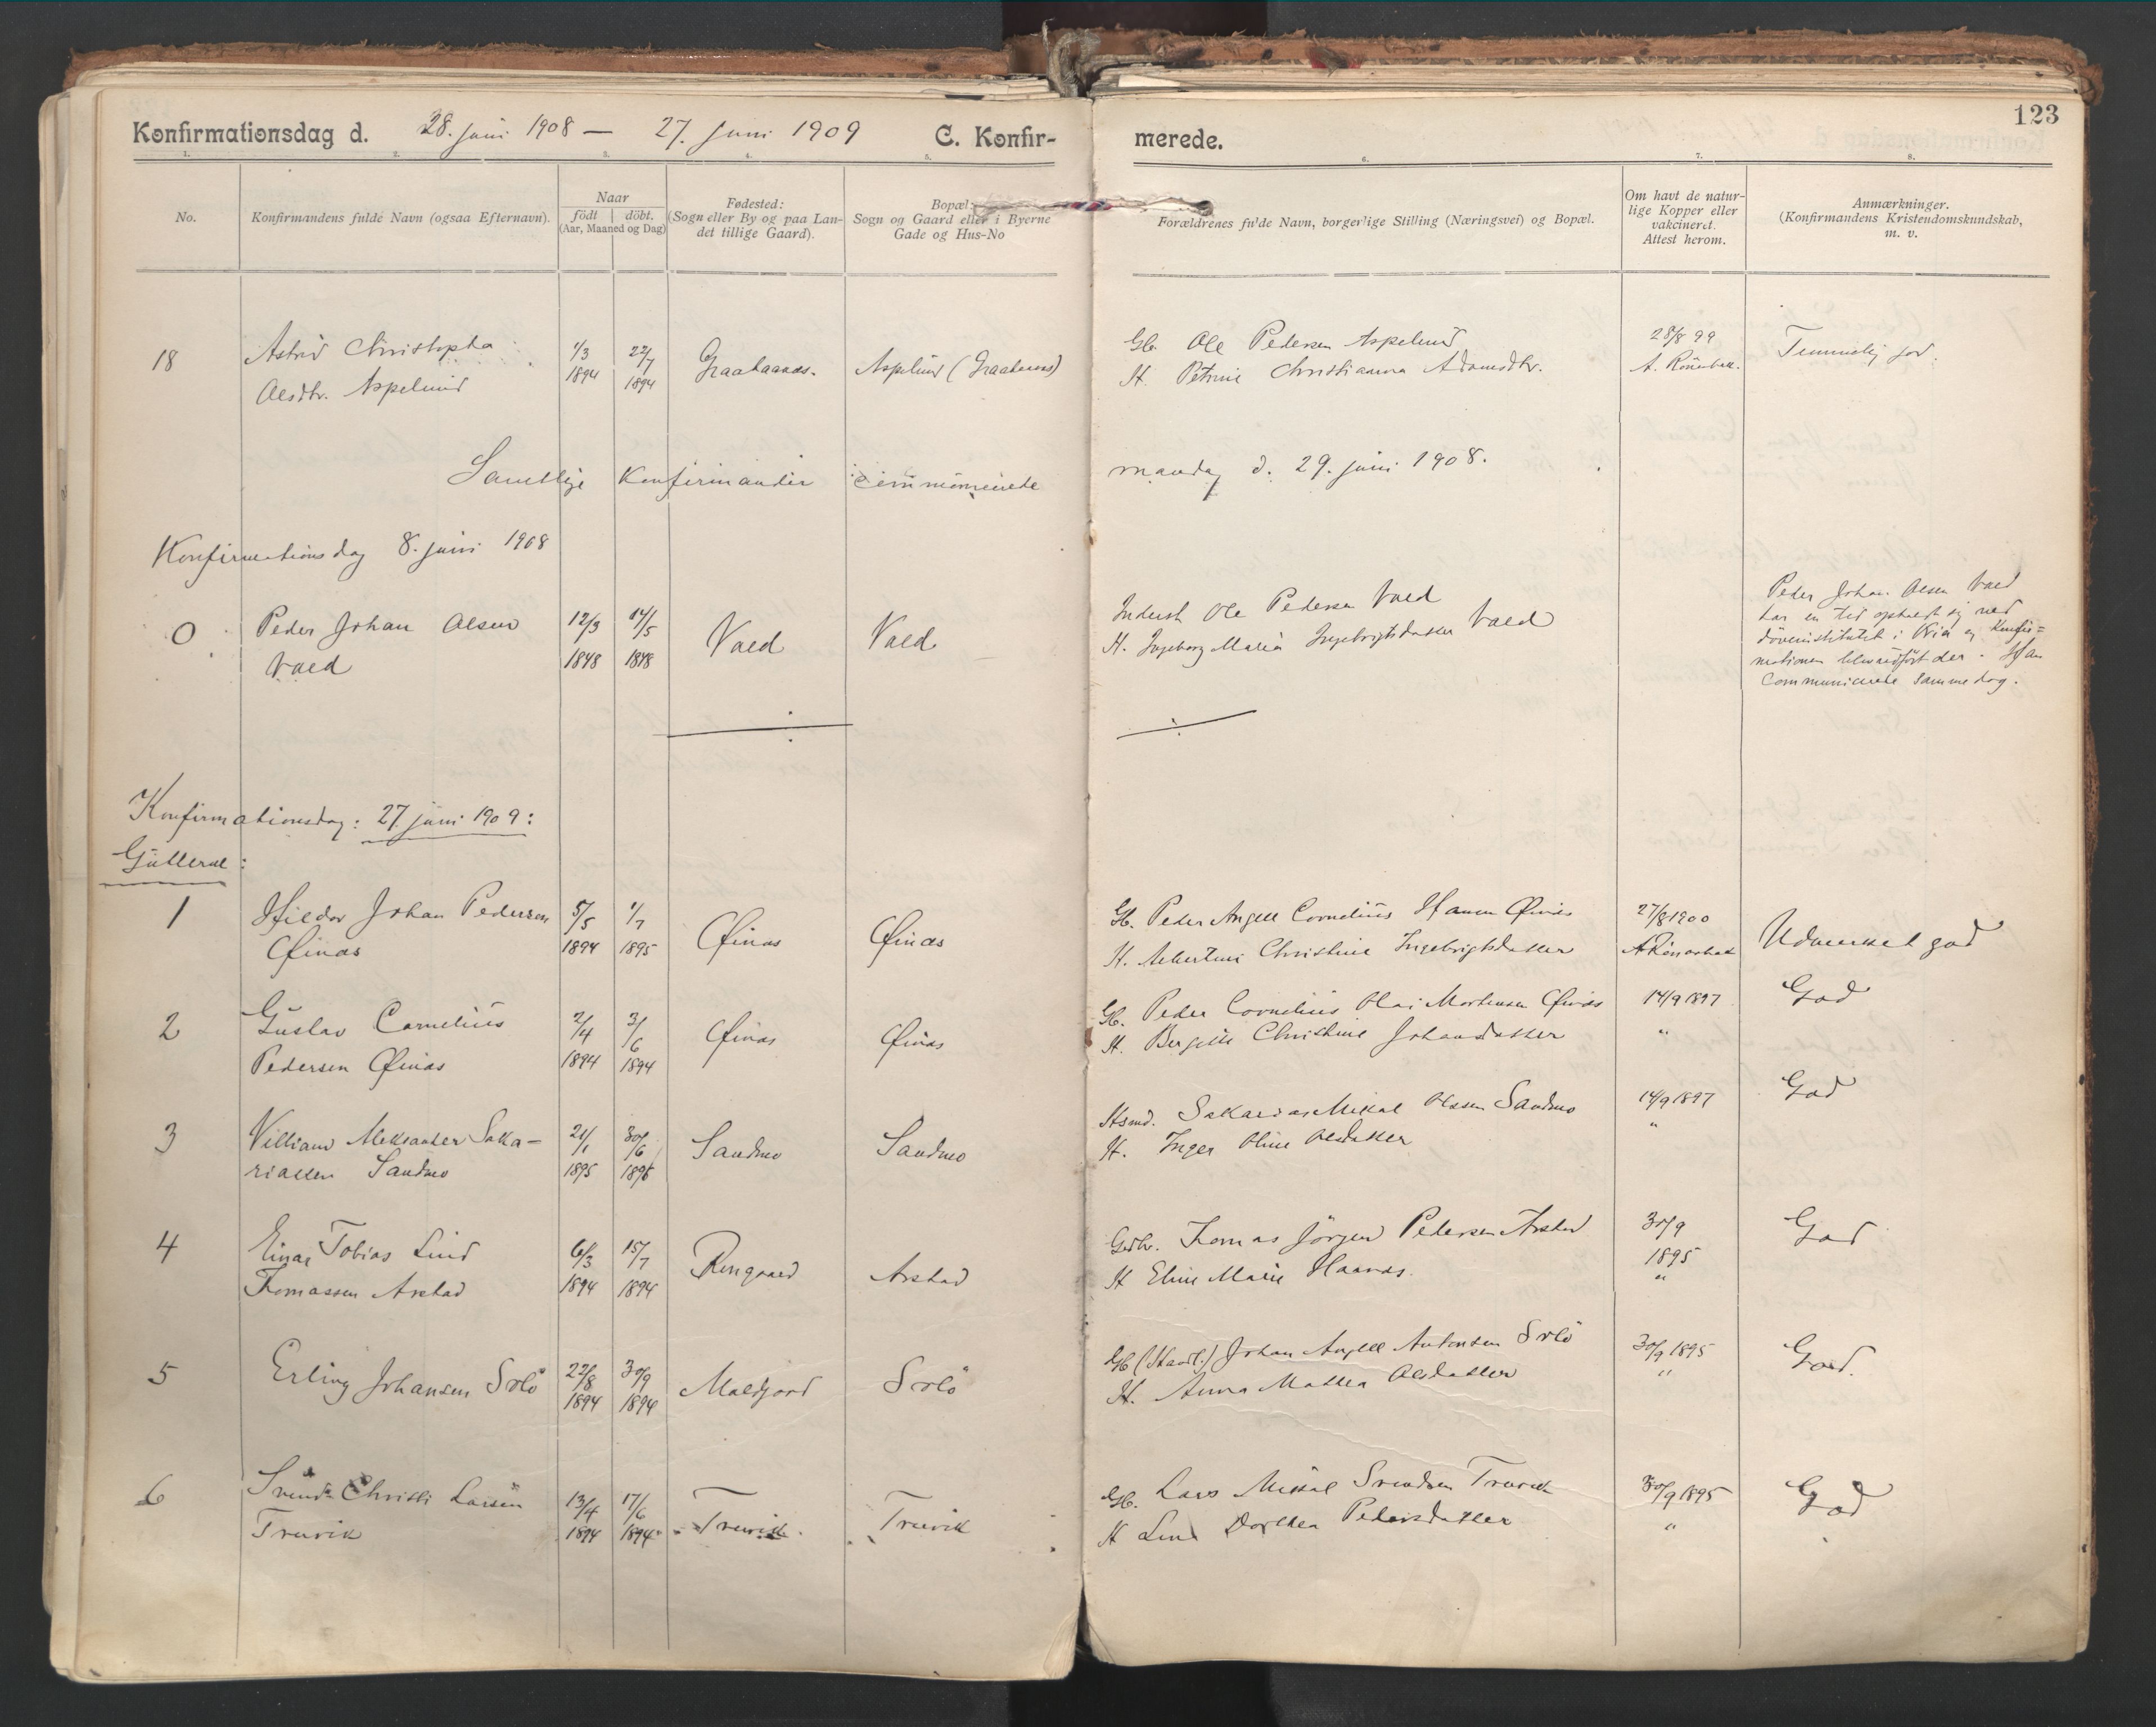 123
Konfirmationsdag d. 28. juni 1908 — 27. juni 1909 C. Konfir-
merede.
1. 2. 3. 4. 5. 6. 7. 8.
No.
Konfirmandens fulde Navn (ogsaa Efternavn).
Naar
født | döbt.
(Aar, Maaned og Dag)
Fødested:
(Sogn eller By og paa Lan-
det tillige Gaard).
Bopæl:
Sogn og Gaard eller i Byerne
Gade og Hus-No
Forældrenes fulde Navn, borgerlige Stilling (Næringsvei) og Bopæl.
Om havt de natur-
lige Kopper eller
vakcineret.
Attest herom.
Anmærkninger.
(Konfirmandens Kristendomskundskab,
m. v.
18 Astrid Christopha 1/3 22/7 Graataanas. Aspelund (Graataanas) Gb. Ole Pedersen Aspelund 28/8 99 Temmelig god.
Olsdtr. Aspelund 1894 1894 H. Petrine Christianna Adamsdtr. A. Rönarbak.
Samtlige Konfirmander communicerede mandag d. 29. juni 1908.
Konfirmationsdag 8. juni 1908
0 Peder Johan Olsen 12/3 14/5 Vaed Vaed Inderst Ole Pedersen Vaed
Vaed 1848 1848 H. Ingeborg Maria Ingebrigtsdatter Vaed
Peder Johan Olsen Vaed
har en tid opholdt sig ved
döveinstitutet i Kria og Konfir=
mationen blev udført der. Han
communicerede samme dag.
Konfirmationsdag: 27. juni 1909:
Gutterne:
1 Hildor Johan Pedersen 5/5 1/7 Øinas Øinas Gb. Peder Angell Cornelius Hansen Øinas 27/8 1900 Udmerket god
Øinas 1894 1895 H. Albertine Christine Ingebrigtsdatter A Rönarbak
2 Gustav Cornelius 2/4 3/6 Øinas Øinas Gb. Peder Cornelius Olai Mortensen Øinas 14/9 1897 God
Pedersen Øinas 1894 1894 H. Bergitte Christine Johansdatter "
3 Villiam Aleksander Saka- 21/1 30/6 Sandmo Sandmo Hsmd. Sakarias Mikal Olsen Sandmo 14/9 1897 God
riassen Sandmo 1895 1895 H. Inger Oline Olsdatter "
4 Einar Tobias Lind 6/3 15/7 Rengaard Arstad Grdbr. Tomas Jörgen Pedersen Arstad 30/9 God
Tomassen Arstad 1894 1894 H Eline Marie Haanas. 1895
"
5 Erling Johansen Solö 22/8 30/9 Maelgjord Solö Gb (Handl.) Johan Angell Antonsen Solö 30/9 1895 God.
1894 1894 H. Anna Mathea Olsdatter "
6 Svend Christi Larsen 13/4 17/6 Truvik. Truvik Gb. Lars Mikal Svendsen Truvik 30/9 1895 God
Truvik 1894 1894 H Line Dorthea Pedersdatter "